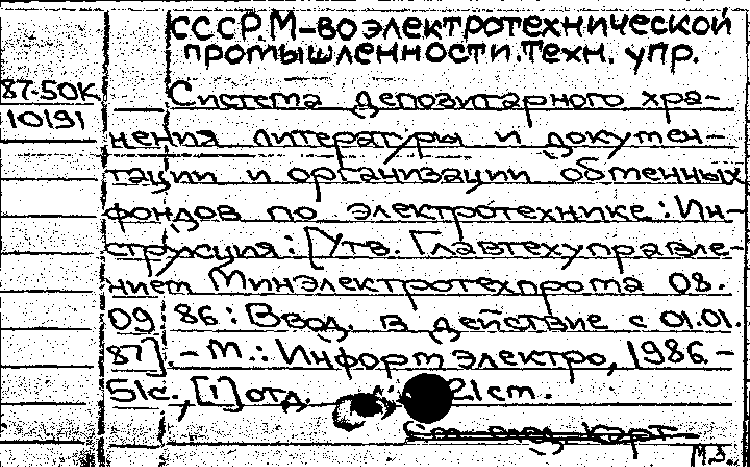 СССР. М-во электротехнической
промышленности. Техн. упр.
87-50К
10191
Система депозитарного хра-
нения литературы и докумен-
тации и организации обменных
фондов по электротехнике: Ин-
струкция: [Утв. Главтехуправле-
нием Минэлектротехпрома 08.
09 86: Ввод. в действие с 01.01.
87]. - М.: Информэлектро, 1986. -
51с., [1] отд. 21 cm.
См. след. карт.